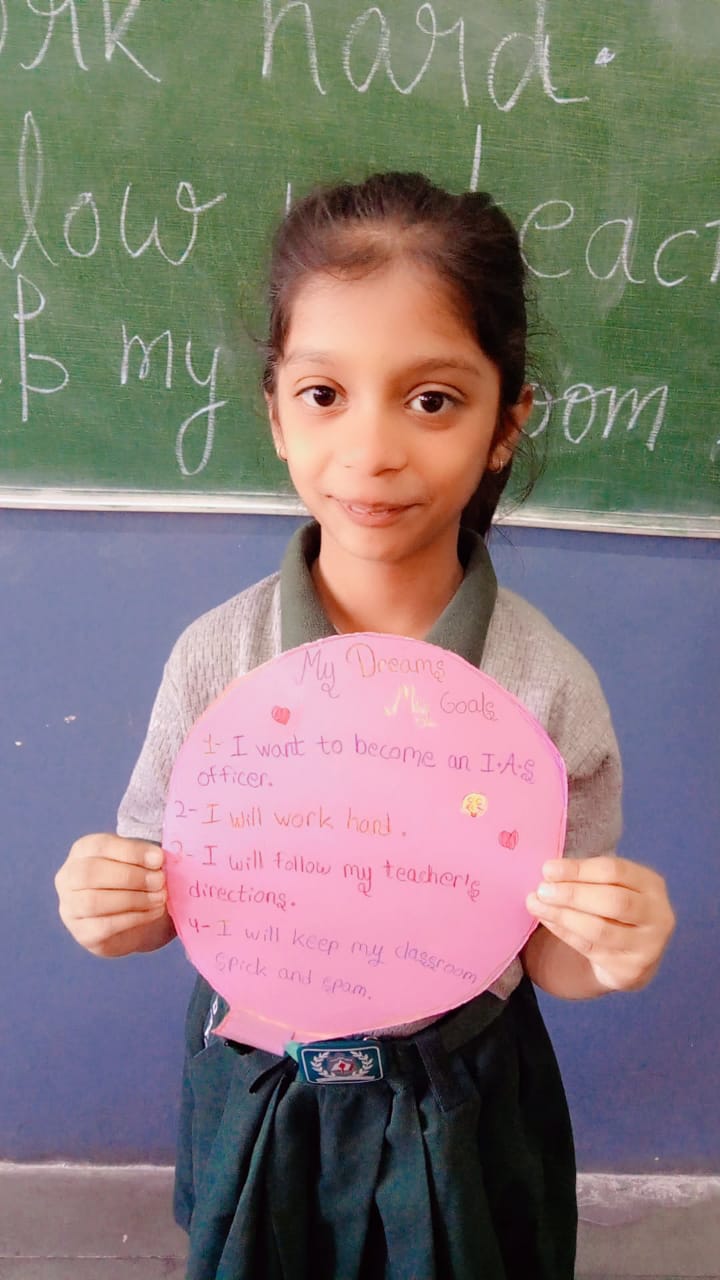 ork hard.
low teac
p my oom
My Dreams
My Goals
1- I want to become an I.A.S
officer.
2- I will work hard.
3- I will follow my teacher's
directions.
4- I will keep my classroom
spick and spam.